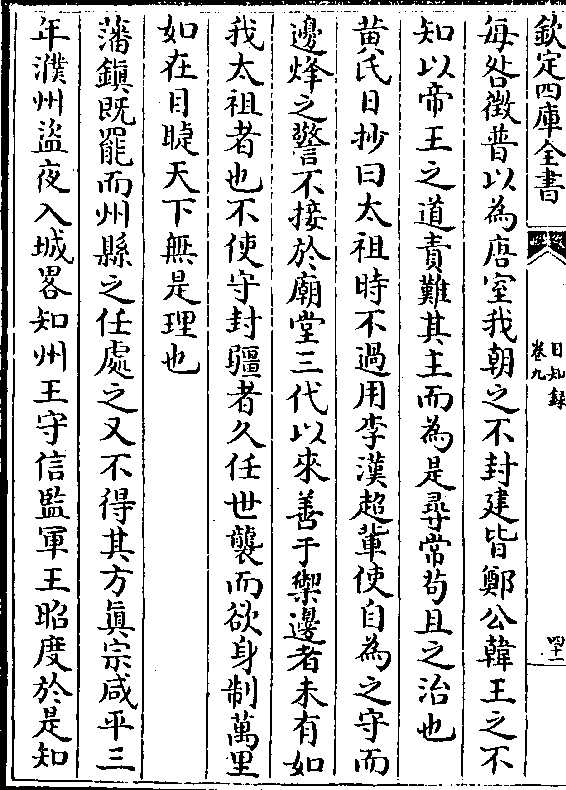 欽定四庫全書
日知錄
卷九
四十二
每咎徵普以為唐室我朝之不封建皆鄭公韓王之不
知以帝王之道責難其主而為是尋常苟且之治也
黄氏日抄曰太祖時不過用李漢超軰使自為之守而
邊烽之警不接於廟堂三代以來善于禦邊者未有如
我太祖者也不使守封疆者久任世襲而欲身制萬里
如在目睫天下無是理也
藩鎮既罷而州縣之任處之又不得其方真宗咸平三
年濮州盜夜入城畧知州王守信監軍王昭度於是知